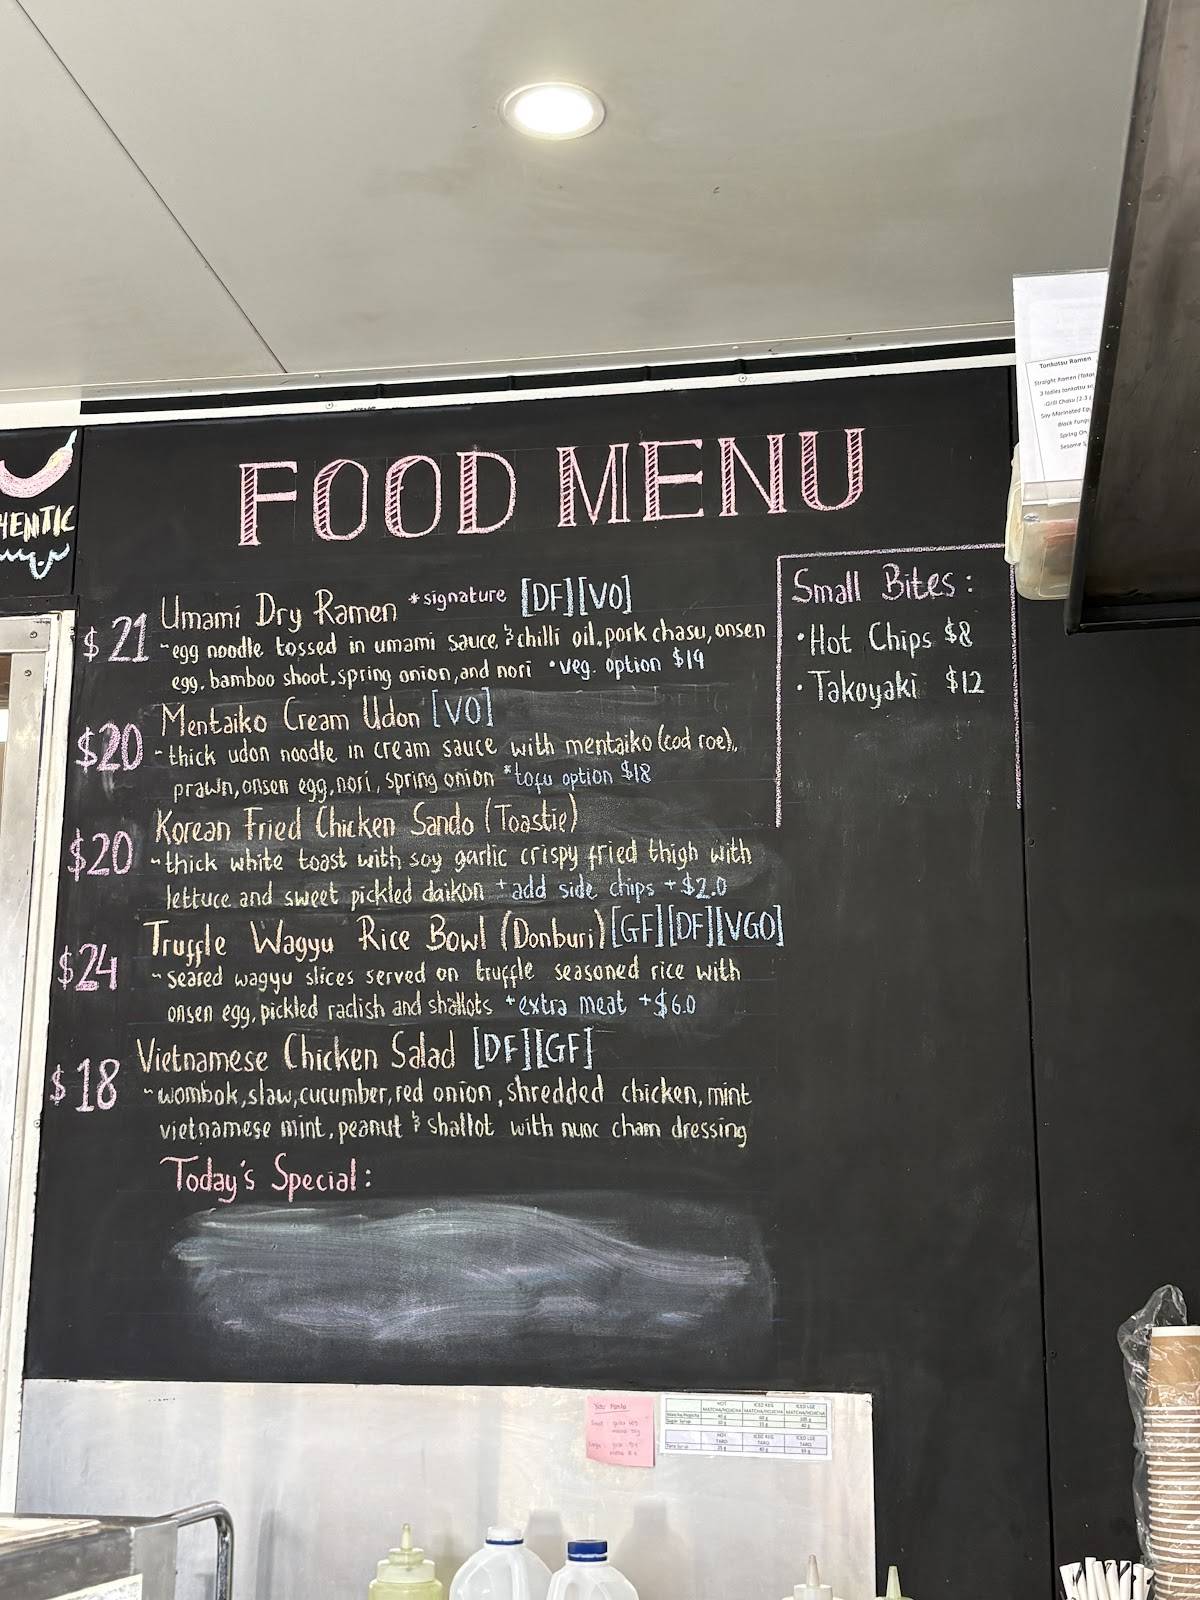 HENTIC
FOOD MENU
$21 Umami Dry Ramen *signature [DF][VO]
~egg noodle tossed in umami sauce, & chilli oil, pork chasu, onsen
egg, bamboo shoot, spring onion, and nori *veg. option $19
$20 Mentaiko Cream Udon [VO]
~thick udon noodle in cream sauce with mentaiko (cod roe),
prawn, onsen egg, nori, spring onion *tofu option $18
$20 Korean Fried Chicken Sando (Toastie)
~thick white toast with soy garlic crispy fried thigh with
lettuce and sweet pickled daikon + add side chips +$2.0
$24 Truffle Wagyu Rice Bowl (Donburi) [GF][DF][VGO]
~seared wagyu slices served on truffle seasoned rice with
onsen egg, pickled radish and shallots +extra meat +$6.0
$18 Vietnamese Chicken Salad [DF][GF]
~wombok, slaw, cucumber, red onion, shredded chicken, mint
vietnamese mint, peanut & shallot with nuoc cham dressing
Today's Special:
Small Bites:
•Hot Chips $8
•Takoyaki $12
Tonkotsu Ramen
Straight Ramen
3 ladles tonkotsu
Soy Marinated
Black Fungus
Spring
Sesame
HOT MATCHA/HOJICHA
ICED REG MATCHA/HOJICHA
ICED LGE MATCHA/HOJICHA
HOT TARO
ICED REG TARO
ICED LGE TARO